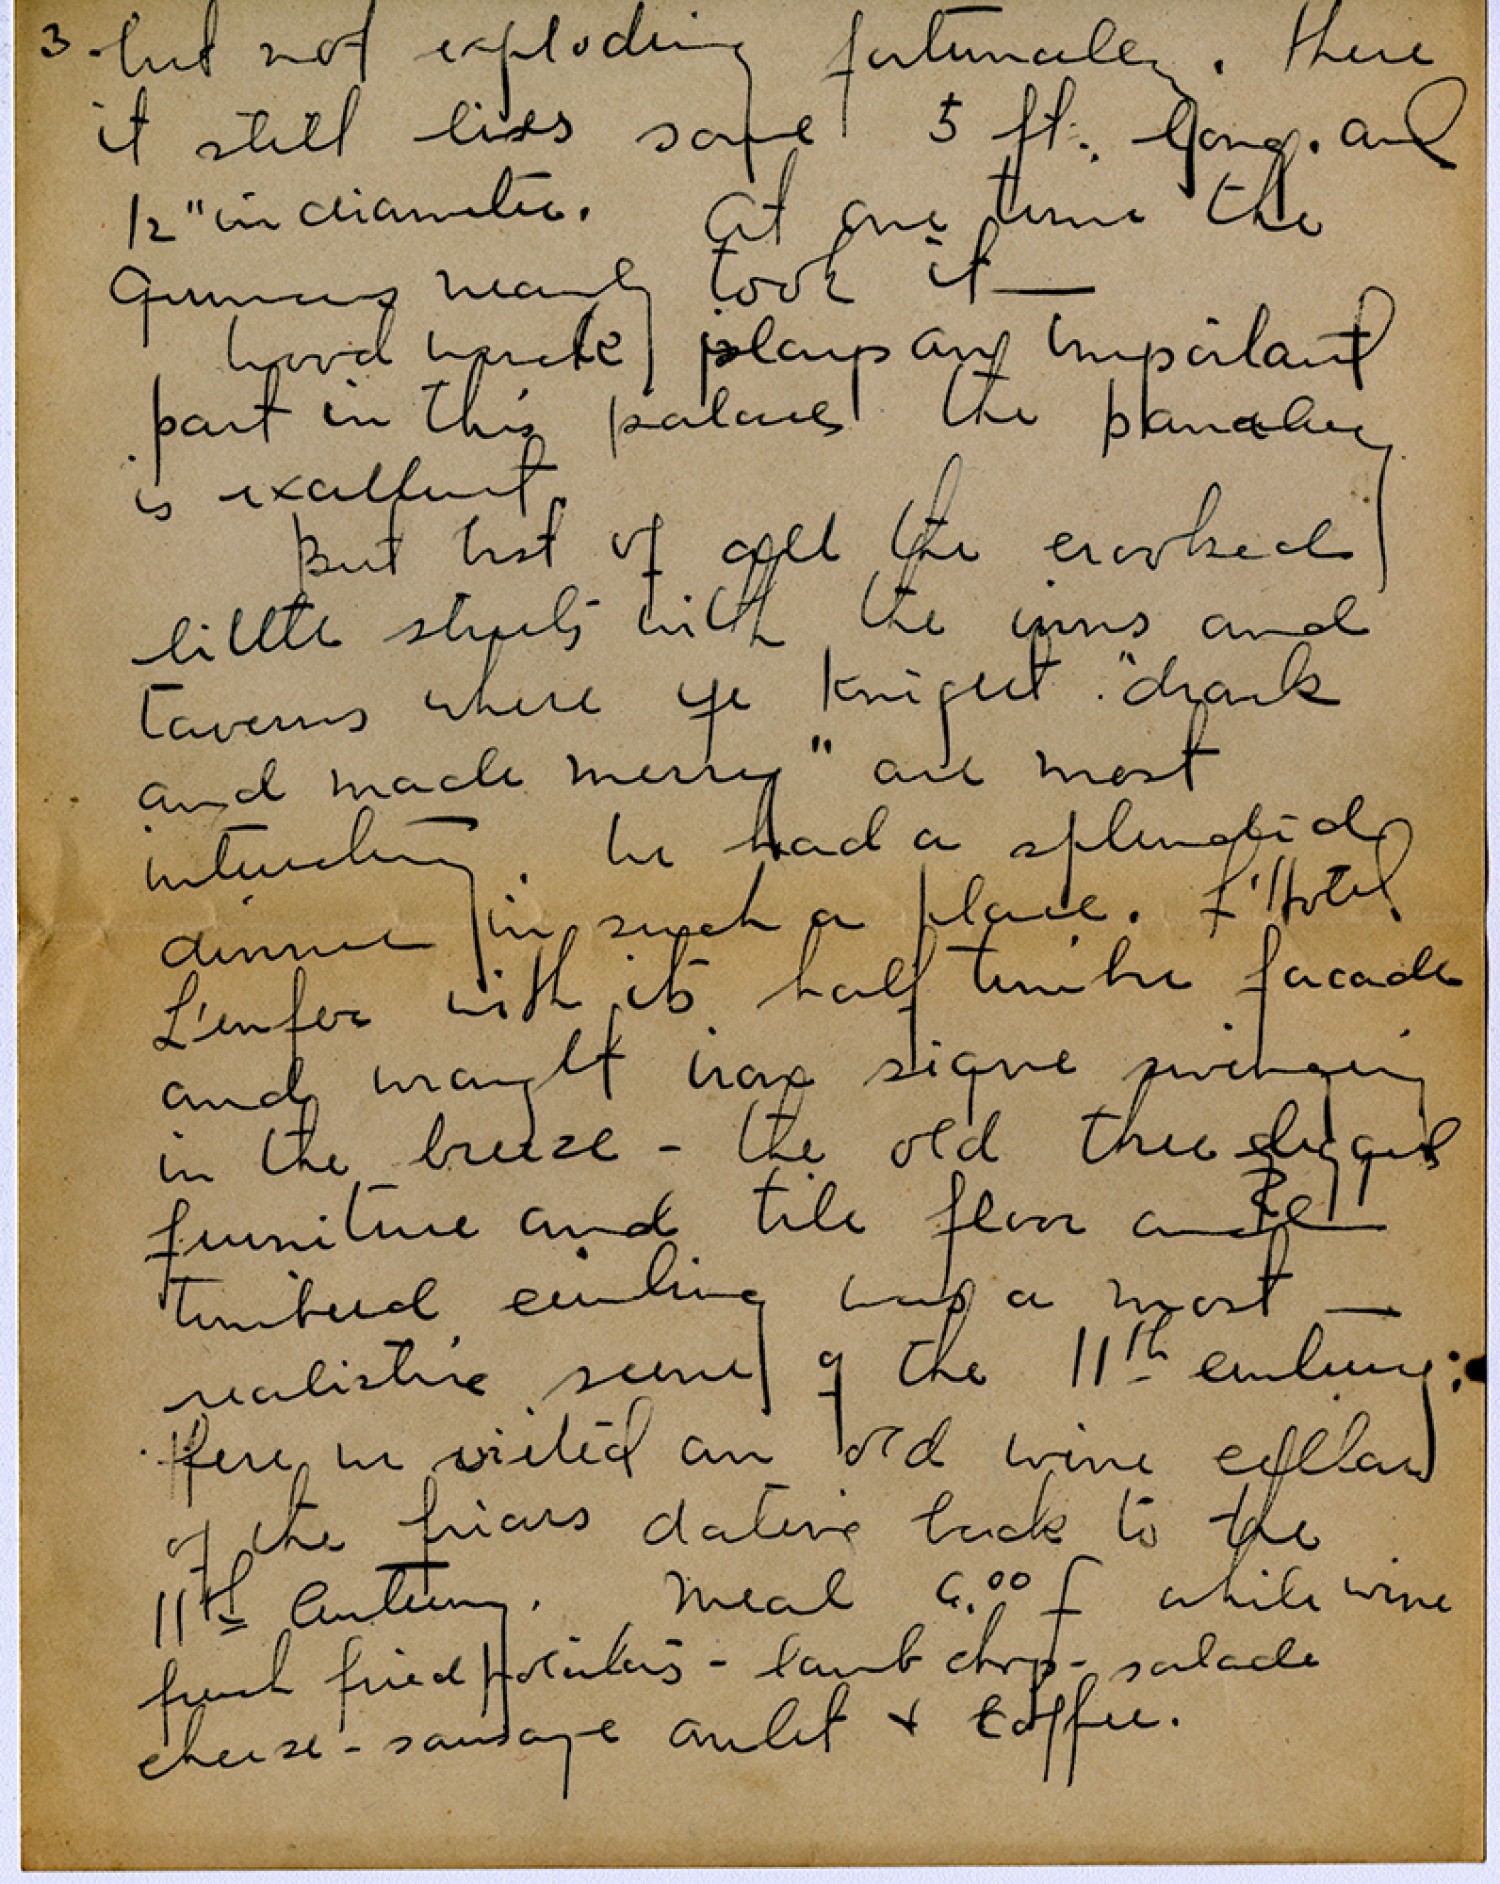 3 - but not exploding fortunately. There
it still lies some 5 ft. long. and
12" in diameter. At one time the
Germans nearly took it —
Wood work plays an important
part in this palace the paneling
is excellent.
But best of all the crooked
little streets with the inns and
taverns where ye Knight "drank
and made merry" are most
interesting. We had a splendid
dinner in such a place. L'Hotel
L'enfer with its half timber facade
and wraught iron signe swinging
in the breeze - the old three legged
furniture and tile floor and
timbered ceiling was a most —
realistic scene of the 11th century:
Here we visited an old wine cellar
of the friars dating back to the
11th Century. Meal 6.00 f white wine
french fried potatoes - lamb chop - salade
cheese - sausage omlet + coffee.